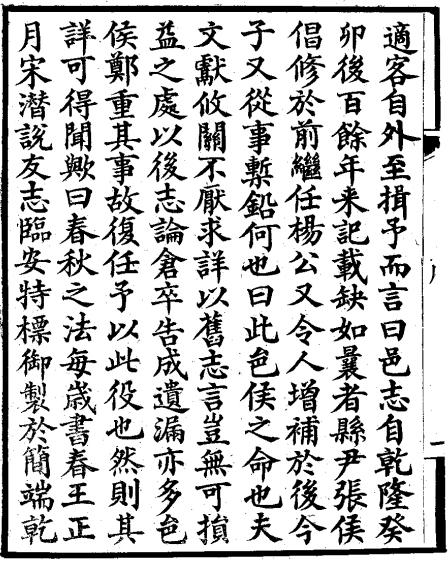 適客自外至揖予而言曰邑志自乾隆癸
卯後百餘年来記載缺如曩者縣尹張侯
倡修於前繼任楊公又令人增補於後今
子又從事槧鉛何也曰此邑侯之命也夫
文獻攸關不厭求詳以舊志言豈無可損
益之處以後志論倉卒告成遺漏亦多邑
侯鄭重其事故復任予以此役也然則其
詳可得聞歟曰春秋之法每歲書春王正
月宋潜說友志臨安特標御製於簡端乾